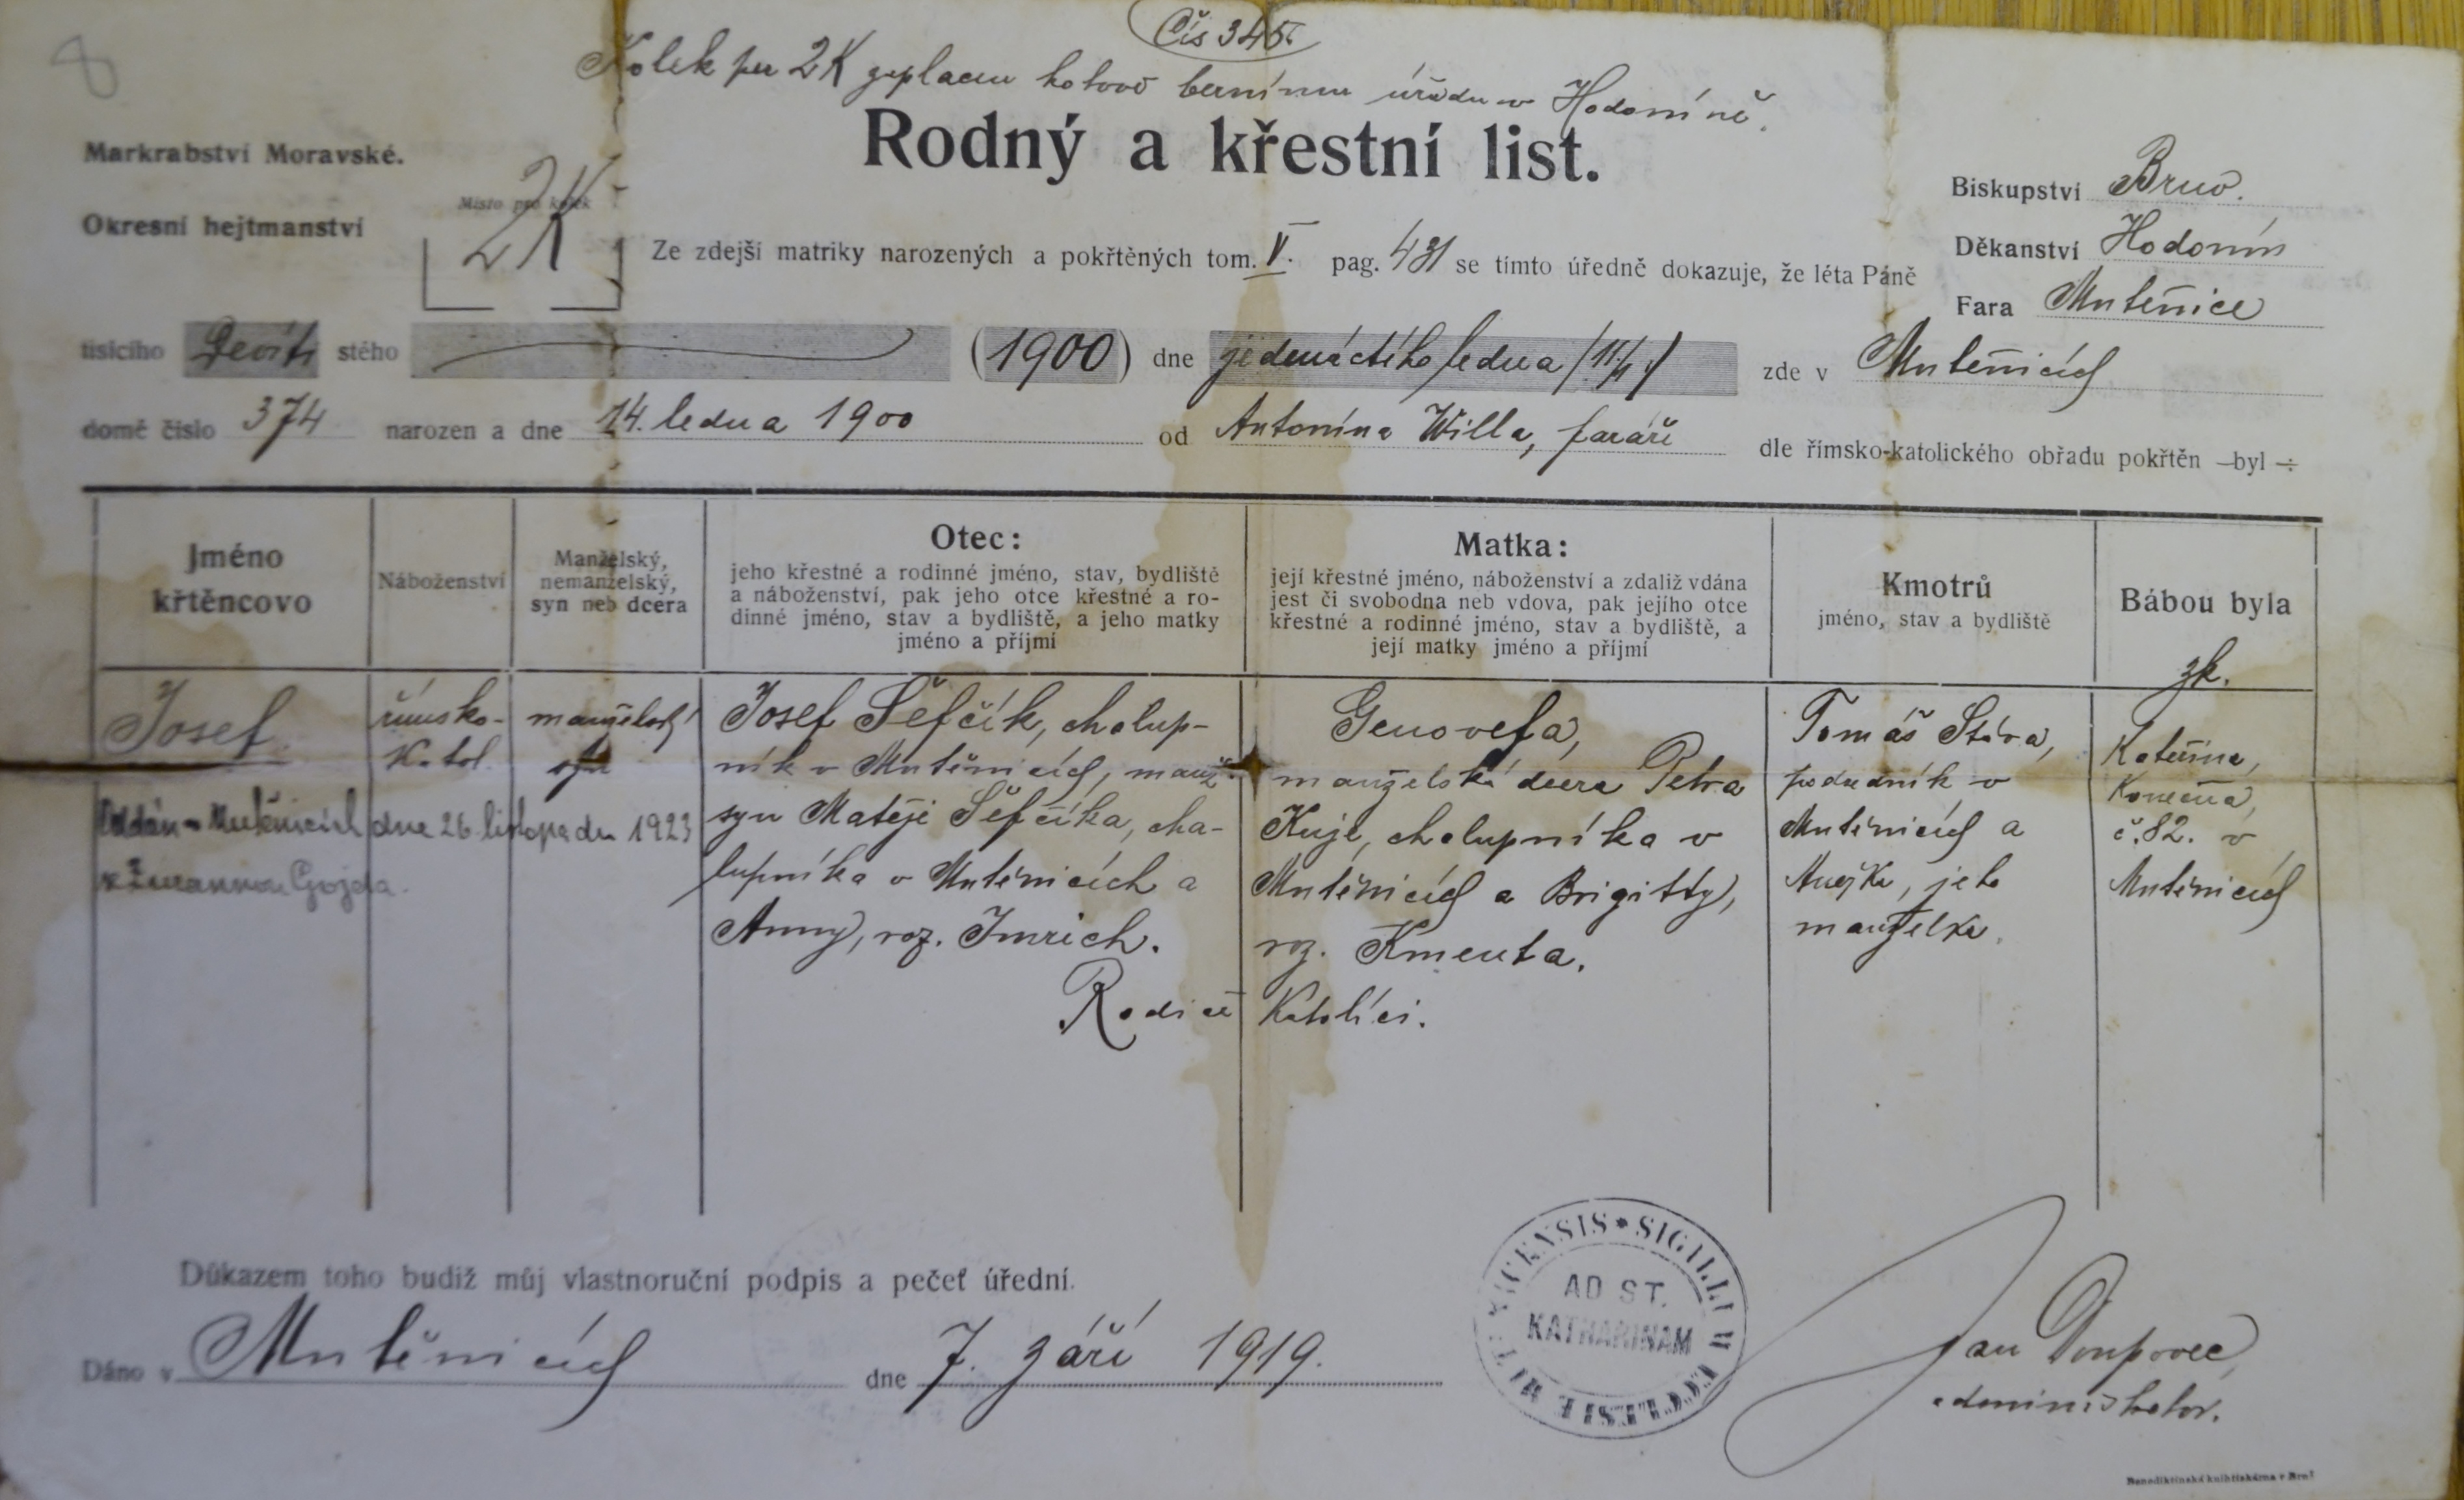 8
Čís 345.
Kolek per 2K zaplacen hotově bernímu úřadu v Hodoníně.
Rodný a křestní list.
Markrabství Moravské.
Okresní hejtmanství
Místo pro kolek
2K
2K
Biskupství Brno.
Děkanství Hodonín
Fara Mutěnice
Ze zdejší matriky narozených a pokřtěných tom. V. pag. 431 se tímto úředně dokazuje, že léta Páně
tisícího Devíti stého (1900) dne jedenáctého ledna /11./1./ zde v Mutěnicích
domě číslo 374 narozen a dne 14. ledna 1900 od Antonína Willa, faráře dle římsko-katolického obřadu pokřtěn —byl ÷
Jméno
křtěncovo
Náboženství
Manželský,
nemanželský,
syn neb dcera
Otec:
jeho křestné a rodinné jméno, stav, bydliště
a náboženství, pak jeho otce křestné a ro-
dinné jméno, stav a bydliště, a jeho matky
jméno a příjmí
Matka:
její křestné jméno, náboženství a zdaliž vdána
jest či svobodna neb vdova, pak jejího otce
křestné a rodinné jméno, stav a bydliště, a
její matky jméno a příjmí
Kmotrů
jméno, stav a bydliště
Bábou byla
zk.
Josef
římsko-
katol.
manželský
syn
Oddán v Mutěnicích dne 26. listopadu 1923
s Zuzannou Gojda.
Josef Šefčík, chalup-
ník v Mutěnicích, manž.
syn Matěje Šefčíka, cha-
lupníka v Mutěnicích a
Anny, roz. Imrich.
Genovefa,
manželská dcera Petra
Kuje, chalupníka v
Mutěnicích a Brigitty,
roz. Kmenta.
Rodiče katolíci.
Tomáš Stáva,
podudník v
Mutěnicích a
Anežka, jeho
manželka.
Kateřina,
Konečná,
č. 82. v
Mutěnicích
Důkazem toho budiž můj vlastnoruční podpis a pečeť úřední.
Dáno v Mutěnicích dne 7. září 1919.
AD ST.
KATHARINAM
Jan Doupovec,
administrator.
Benediktinská knihtiskárna v Brně